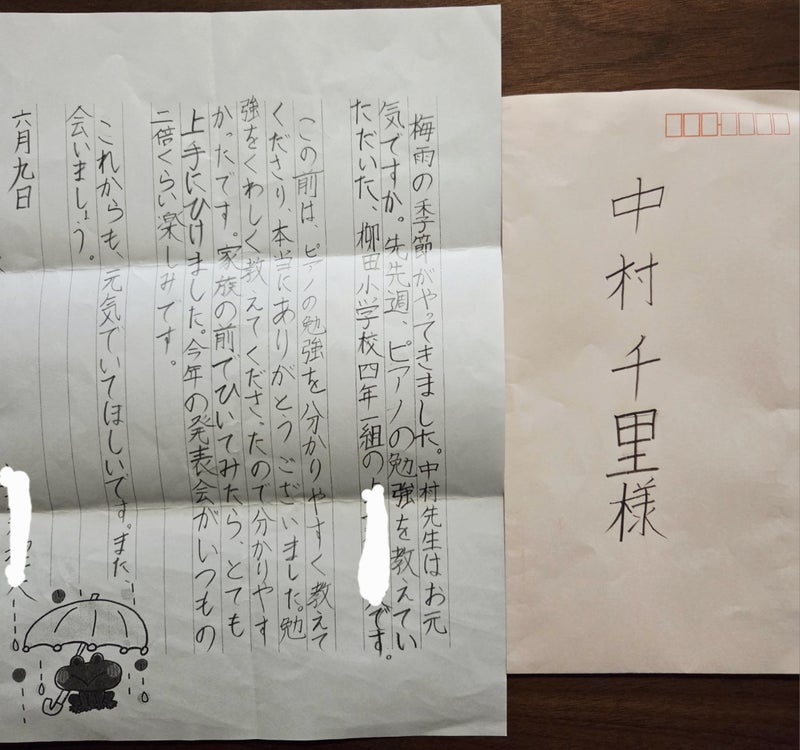 梅雨の季節がやってきました。中村先生はお元
気ですか。先先週、ピアノの勉強を教えてい
ただいた、柳田小学校四年一組の
です。
この前は、ピアノの勉強を分かりやすく教えて
くださり、本当にありがとうございました。勉
強をくわしく教えてくださったので分かりやす
かったです。家族の前でひいてみたら、とても
上手にひけました。今年の発表会がいつもの
二倍くらい楽しみです。
これからも、元気でいてほしいです。また、
会いましょう。
六月九日
中村千里様